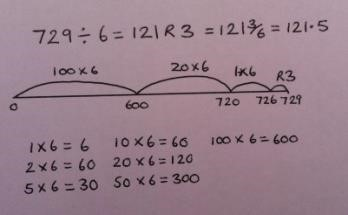 729 ÷ 6 = 121 R 3 = 121 3/6 = 121·5
100 × 6 20 × 6 1×6 R3
0 600 720 726 729
1 × 6 = 6 10 × 6 = 60 100 × 6 = 600
2 × 6 = 60 20 × 6 = 120
5 × 6 = 30 50 × 6 = 300